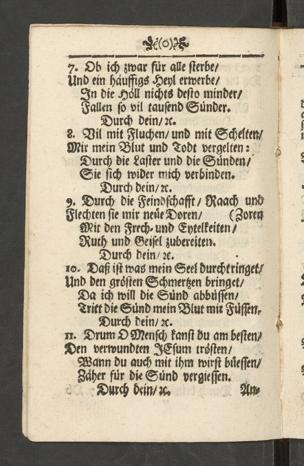 (o)
7. Ob ich zwar für alle sterbe/
Und ein häuffigs Heyl erwerbe/
In die Höll nichts desto minder/
Fallen so vil tausend Sünder.
Durch dein/ ꝛc.
8. Vil mit Fluchen/ und mit Schelten/
Mir mein Blut und Todt vergelten:
Durch die Laster und die Sünden/
Sie sich wider mich verbinden.
Durch dein/ ꝛc.
9. Durch die Feindschafft/ Raach und
Flechten sie mir neüe Doren/ (Zoren
Mit den Frech- und Eytelkeiten/
Ruth und Geisel zubereiten.
Durch dein/ ꝛc.
10. Daß ist was mein Seel durchtringet/
Und den grösten Schmertzen bringet/
Da ich will die Sünd abbüssen/
Tritt die Sünd mein Blut mit Füssen.
Durch dein/ ꝛc.
11. Drum O Mensch kanst du am besten/
Den verwundten JEsum trösten/
Wann du auch mit ihm wirst büessen/
Zäher für die Sünd vergiessen.
Durch dein/ ꝛc. An-